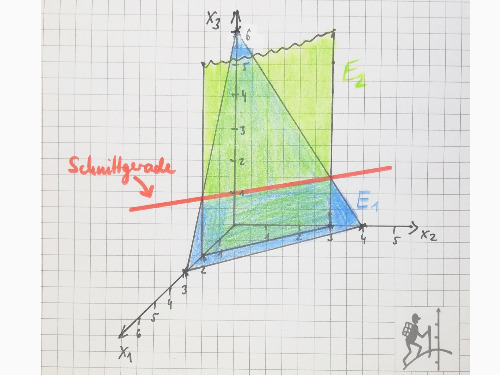 X3
6
5
4
3
2
1
E2
Schnittgerade
E1
1 2 3 4 5 X2
1
2
3
4
5
6
X1